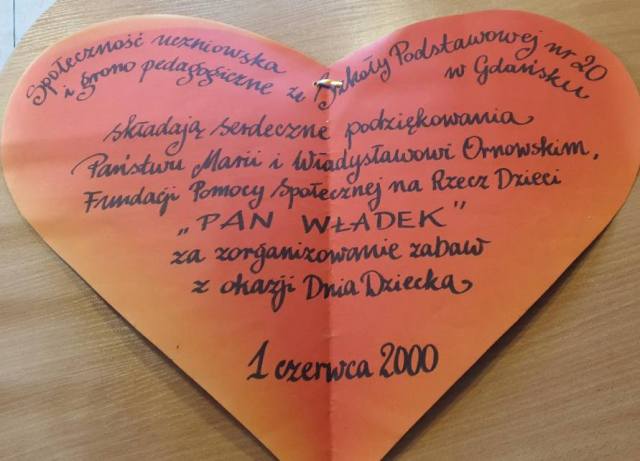 Społeczność uczniowska
i grono pedagogiczne ze Szkoły Podstawowej nr 20
w Gdańsku
składają serdeczne podziękowania
Państwu Marii i Władysławowi Ornowskim,
Fundacji Pomocy Społecznej na Rzecz Dzieci
„PAN WŁADEK”
za zorganizowanie zabaw
z okazji Dnia Dziecka
1 czerwca 2000